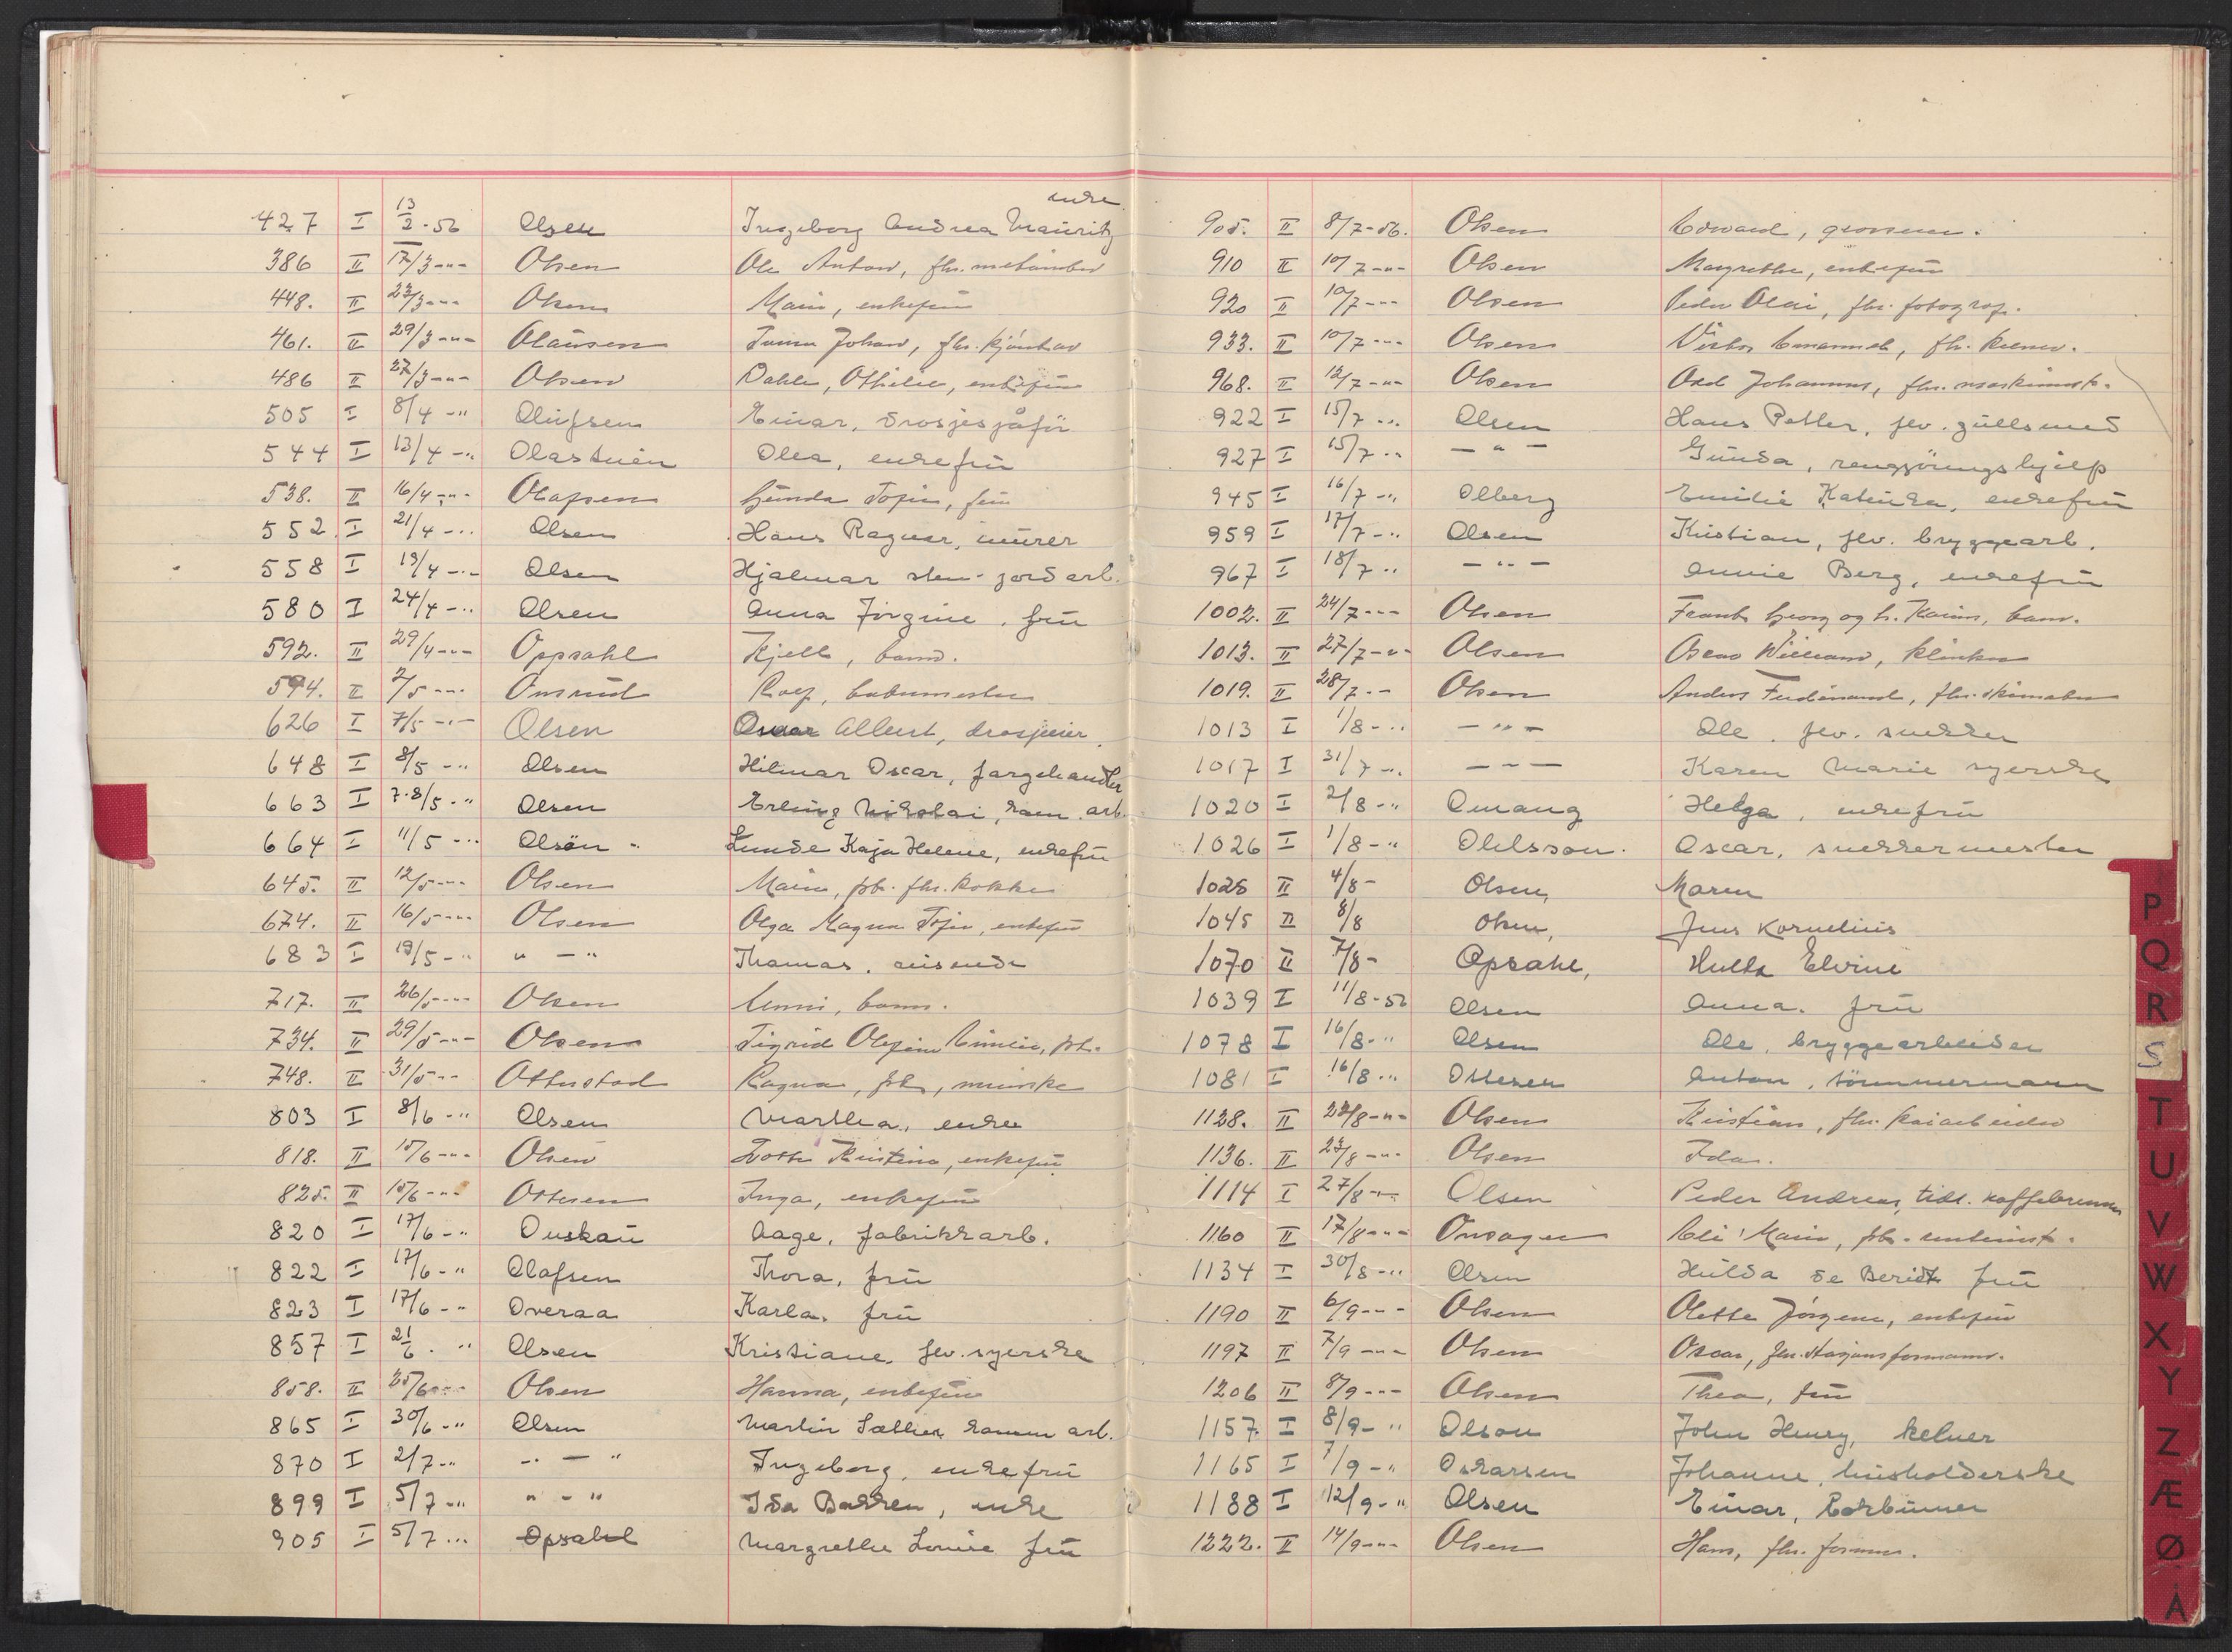 enke
427 I 13/2-56 Olsen Ingeborg Andrea Mauritz
386 II 17/3-"- Olsen Ole Anton, fhv.
448. II 23/3-"- Olsen Marie, enkefrü
461. II 29/3-"- Olaüsen Johan, fhv.
486 II 27/3-"- Olsen Dahle, Othilie, enkefrü
505 I 8/4-" Olüfsen Einar, drosjesjåfør
544 I 13/4-" Olastüen Olea, enkefrü
538. II 16/4-"- Olafsen Günda Sofie, frü
552 I 21/4-" Olsen Hans Ragnar, mürer
558 I 19/4-"- Olsen Hjalmar sten-jordarb.
580 I 24/4-" Olsen Anna Jørgine, frü
592. II 29/4-"- Oppsahl Kjell, barn.
594. II 2/5-"- Omsrud Rolf,
626 I 7/5-"- Olsen Oscar Albert, drosjeeier
648 I 8/5-" Olsen Hilmar Oscar, fargehandler
663 I 7-8/5-" Olsen Erling Nikolai, kom. arb.
664 I 11/5-" Olsøn - Lunde Kaja Helene, enkefrü
645. II 12/5-"- Olsen Marie, pb. fhv. kokke
674. II 16/5-"- Olsen Olga Magna Sofie, enkefrü
683 I 19/5-" " - " Thomas, reisende
717. II 26/5-"- Olsen Unni, barn.
734. II 29/5-"- Olsen Sigrid Olefine Emilie, pb.
748. II 31/5-"- Ottustad Ragna, pb,
803 I 8/6-" Olsen Martha, enke
818. II 15/6-"- Olsen Lotte Kristine, enkefrü
825. II 15/6-"- Ottesen Inga, enkefrü
820 I 17/6-" Ouskaü Aage, fabrikkarb.
822 I 17/6-" Olafsen Thora, frü
823 I 17/6-" Overaa Karla, frü
857 I 21/6-" Olsen Kristiane, fhv. syerske
858. II 25/6-"- Olsen Hanna, enkefrü
865 I 30/6-" Olsen Martin Sæther komm arb.
870 I 2/7-" " - " Ingeborg, enkefrü
899 I 5/7-" " - " Ida Bakken, enke
905 I 5/7-" Opsahl Margrethe Louise frü
905. II 8/7-56. Olsen Edvard, grosserer.
910 II 10/7-"- Olsen Margrethe, enkefrü
920 II 10/7-"- Olsen Peder Olai, fhv. fotograf.
933. II 10/7-"- Olsen Victor Emanuel, fh.
968. II 12/7-"- Olsen Odd Johannes, fhv. maskinist.
922 I 15/7-" Olsen Hans Petter, fhv. güllsmed
927 I 15/7-" - " - Günda, rengjøringshjelp
945 I 16/7-" Olberg Emilie Katinka, enkefrü
959 I 17/7-" Olsen Kristian, fhv. bryggearb.
967 I 18/7-" - " - Annie Berg, enkefrü
1002. II 24/7-"- Olsen Georg og barn.
1013. II 27/7-"- Olsen Oscar William,
1019. II 28/7-"- Olsen Anders Ferdinand, fhv. skinnatur
1013 I 1/8-" - " - Ole, fhv. snekker
1017 I 31/7-" - " - Karen Marie syerske
1020 I 2/8-" Omang Helga, enkefrü
1026 I 1/8-" Ohlsson. Oscar, snekkermester
1025 II 4/8- Olsen, Maren
1045 II 8/8 Olsen, Jens Kornelius
1070 II 7/8- Opsahl, Hulda Elvine
1039 I 11/8-56 Olsen Anna, frü
1078 I 16/8-" Olsen Ole, bryggearbeider
1081 I 16/8-" Ottesen Anton, tømmermann
1128. II 22/8-"- Olsen Kristian, fhv. kaiarbeider
1136. II 23/8-"- Olsen Ida.
1114 I 27/8-"- Olsen Peder Andreas, tidl. kaffebrenner
1160 II 17/8-"- Onsager Marie, pb.
1134 I 30/8-" Olsen Hülda de Beridt frü
1190 II 6/9-"- Olsen Olette Jørgine, enkefrü
1197 II 7/9-"- Olsen Oscar, fhv. stasjonsformann.
1206 II 8/9-"- Olsen Thea, frü
1157. I 8/9-" Olson John Henry, kelner
1165 I 7/9-" Oskarsen Johanne, hüsholderske
1188 I 12/9-" Olsen Einar,
1222. II 14/9-"- Olsen Hans, fhv. former.
P
Q
R
S
T
U
V
W
X
Y
Z
Æ
Ø
Å